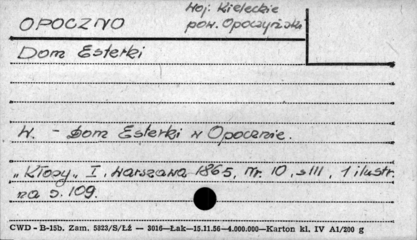 OPOCZNO
Woj. Kieleckie
pow. Opoczyński
Dom Esterki
W. - Dom Esterki w Opocznie.
"Kłosy" I, Warszawa 1865, nr. 10, s 111, 1 ilustr.
na s. 109.
CWD - B-15b. Zam. 5323/S/Łż — 3016—Łak—15.11.56—4.000.000—Karton kl. IV A1/200 g